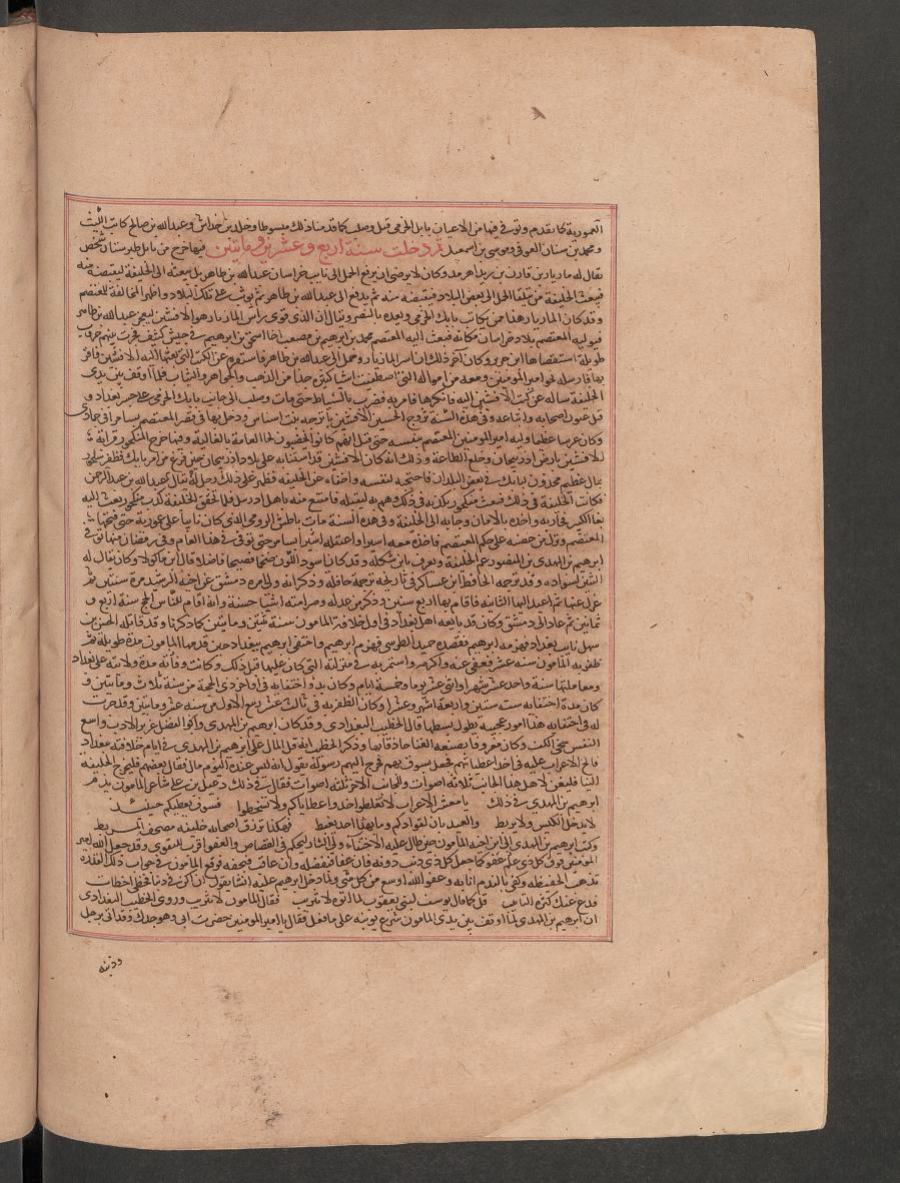 العمورية كما تقدم وتوفي فيها من الاعيان بابك الخرمي قتل وصلب كما قدمنا ذلك مبسوطا وخالد بن خداش وعبد الله بن صالح كاتب الليث
ومحمد بن سنان العوفي وموسى بن اسمعيل ثم دخلت سنة اربع وعشرين ومايتين فيها خرج من بابل طبرستان شخص
يقال له مازيار بن قارن بن يزداهرمد وكان لا يرضى ان يرفع الحمل الى نايب خراسان عبد الله بن طاهر بل يبعثه الى الخليفة ليقبضه منه
فيبعث الخليفة من يتلقا الحمل الى بعض البلاد فيقبضه منه ثم يدفع الى عبد الله بن طاهر ثم توثب على تلك البلاد واظهر المخالفة للمعتصم
وقد كان المازيار هذا ممن يكاتب بابك الخرمي ويعده بالنصر ويقال ان الذي قوى راس المازيار هو الافشين ليعجز عبد الله بن طاهر
فيوليه المعتصم بلاد خراسان مكانه فبعث اليه المعتصم محمد بن ابراهيم بن مصعب اخا اسحق بن ابراهيم في جيش كثيف فجرت بينهم حروب
طويلة استقصاها ابن جرير وكان آخر ذلك ان اسر المازيار وحمل الى عبد الله بن طاهر فاستقره عن الكتب التي بعثها اليه الافشين فاقر
بها فارسله نحو امير المومنين ومعه من امواله التي اصطفيت اشيا كثيرة جدا من الذهب والجواهر والثياب فلما اوقف بين يدي
الخليفة ساله عن كتب الافشين اليه فانكرها فامر به فضرب بالسياط حتى مات وصلب الى جانب بابك الخرمي على جسر بغداد و
قتل عيون اصحابه واتباعه وفي هذه السنة تزوج الحسن بن الافشين باترجه بنت اشناس ودخل بها في قصر المعتصم بسامرا في جمادى
وكان عرسا عظيما وليه امير المومنين المعتصم بنفسه حتى قيل انهم كانوا يخضبون لحا العامة بالغالية وفيها خرج منكجور قرابة
للافشين بارض اذربيجان وخلع الطاعة وذلك انه كان الافشين قد استنابه على بلاد اذربيجان حين فرغ من امر بابك فظفر منكجور
بمال عظيم مخزون لبابك في بعض البلدان فاحتجبه لنفسه واخفاه عن الخليفة فظهر على ذلك رجل له يقال له عبد الله بن عبد الرحمن
فكاتب الخليفة في ذلك فبعث منكجور يكذبه في ذلك وهم به ليقتله فامتنع منه باهل اردبيل فلما تحقق الخليفة كذب منكجور بعث اليه
بغا الكبير فحاربه واخذه بالامان وجا به الى الخليفة وفي هذه السنة مات باطش الرومي الذي كان نايبا على عمورية حتى فتحها
المعتصم ونزل من حصنه على حكم المعتصم فاخذه معه اسيرا واعتقله بسامرا حتى توفي في هذا العام وفي رمضان منها توفي
ابراهيم بن المهدي بن المنصور عم الخليفة ويعرف بابن شكله وقد كان اسود اللون ضخما فصيحا فاضلا قال ابن ماكولا وكان يقال له
التنين لسواده وقد ترجمه الحافظ ابن عساكر في تاريخه ترجمة حافلة وذكر انه ولي امرة دمشق عن اخيه الرشيد مدة سنتين ثم
عزل عنها ثم اعيد اليها الثانية فاقام بها اربع سنين وذكر من عدله وصرامته اشيا حسنة وانه اقام للناس الحج سنة اربع و
ثمانين ثم عاد الى دمشق وكان قد بايعه اهل بغداد في اول خلافة المامون سنة ثنتين ومايتين كما ذكرنا وقد قاتله الحسن بن
سهل نايب بغداد فهزمه ابراهيم فقصده حميد الطوسي فهزم ابراهيم واختفى ابراهيم ببغداد حين قدمها المامون مدة طويلة ثم
ظفر به المامون سنة عشر فعفى عنه واكرمه واستمر به في منزلته التي كان عليها قبل ذلك وكانت وفاته مدة ولايته على بغداد
ومعاملتها سنة واحد عشر شهرا واثني عشر يوما وخمسة ايام وكان بدو اختفايه في اواخر ذي الحجة من سنة ثلاث ومايتين ف
كان مدة اختفايه ست سنين واربعة اشهر وعشرا وكان الظفر به في ثالث عشر ربيع الاول من سنة عشر ومايتين وقد جرت
له في اختفايه هذا امور عجيبة يطول بسطها قال الخطيب البغدادي وقد كان ابراهيم بن المهدي وافر الفضل غزير الادب واسع
النفس سخي الكف وكان معروفا بصنعة الغنا حاذقا بها وذكر الخطيب انه قل المال على ابراهيم بن المهدي في ايام خلافته ببغداد
فالح الاعراب عليه في اخذ اعطياتهم فجعل يسوف بهم فخرج اليهم رسوله يقول انه ليس عنده اليوم مال فقال بعضهم فليخرج الخليفة
الينا فليغن لاهل هذا الجانب ثلاثة اصوات والجانب الاخر ثلثة اصوات فقال في ذلك دعبل بن علي شاعر المامون يذم
ابراهيم بن المهدي في ذلك يا معشر الاعراب لا تغلطوا خذوا عطاياكم ولا تسخطوا فسوف يعطيكم حنينية
لا يدخل الكيس ولا يربط والمعبديات لقوادكم وما بهذا احد يغبط فهكذا يرزق اصحابه خليفة مصحفه البربط
وكتب ابراهيم بن المهدي الى ابن اخيه المامون حين طال عليه الاختفاء ولي الثار محكم في القصاص والعفو اقرب للتقوى وقد جعل الله امير
المومنين فوق كل ذي عفو كما جعل كل ذي ذنب دونه فان عفا فبفضله وان عاقب فبحقه فوقع المامون في جواب ذلك القدره
تذهب الحفيظه وكفى بالندم انابه وعفو الله اوسع من كل شي ولما دخل ابراهيم عليه انشا يقول ان اكن مذنبا فحظي اخطات
فدع عنك كثرة التانيب قل كما قال يوسف لبني يعقوب لما اتوه لا تثريب فقال المامون لا تثريب وروى الخطيب البغدادي
ان ابراهيم بن المهدي لما اوقف بين يدي المامون شرع يونبه على ما فعل فقال يا امير المومنين حضرت ابي وهو جدك وقد اتي برجل
وذنبه